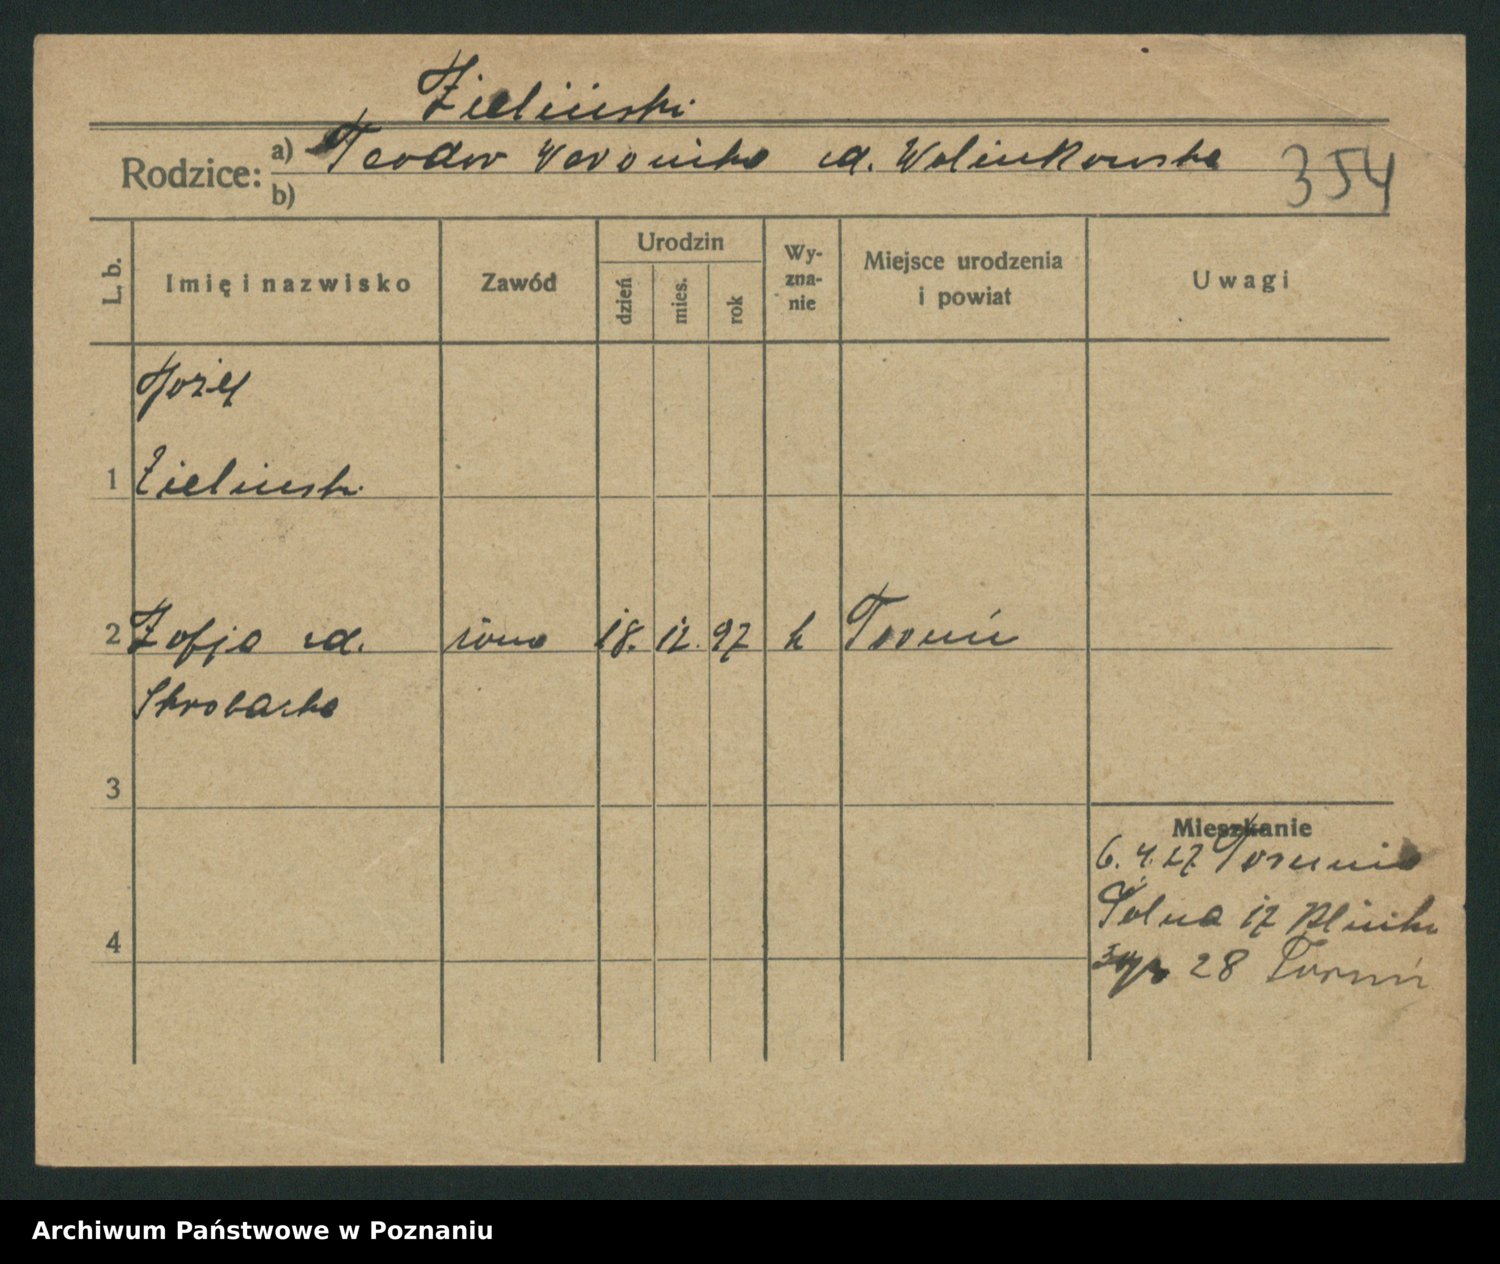 Zieliński
Rodzice: a) Teodor Weronika zd. Wolinkowska
b)
354
L. b.
Imię i nazwisko
Zawód
Urodzin
dzień
mies.
rok
Wy-
zna-
nie
Miejsce urodzenia
i powiat
Uwagi
Józef
1 Zielinski
2 Zofja zd. żona 18. 12. 97 k Toruń
Skrobacka
3
Mieszkanie
6. 4. 27 Torunia
Polna 17
4
28 Toruń
Archiwum Państwowe w Poznaniu